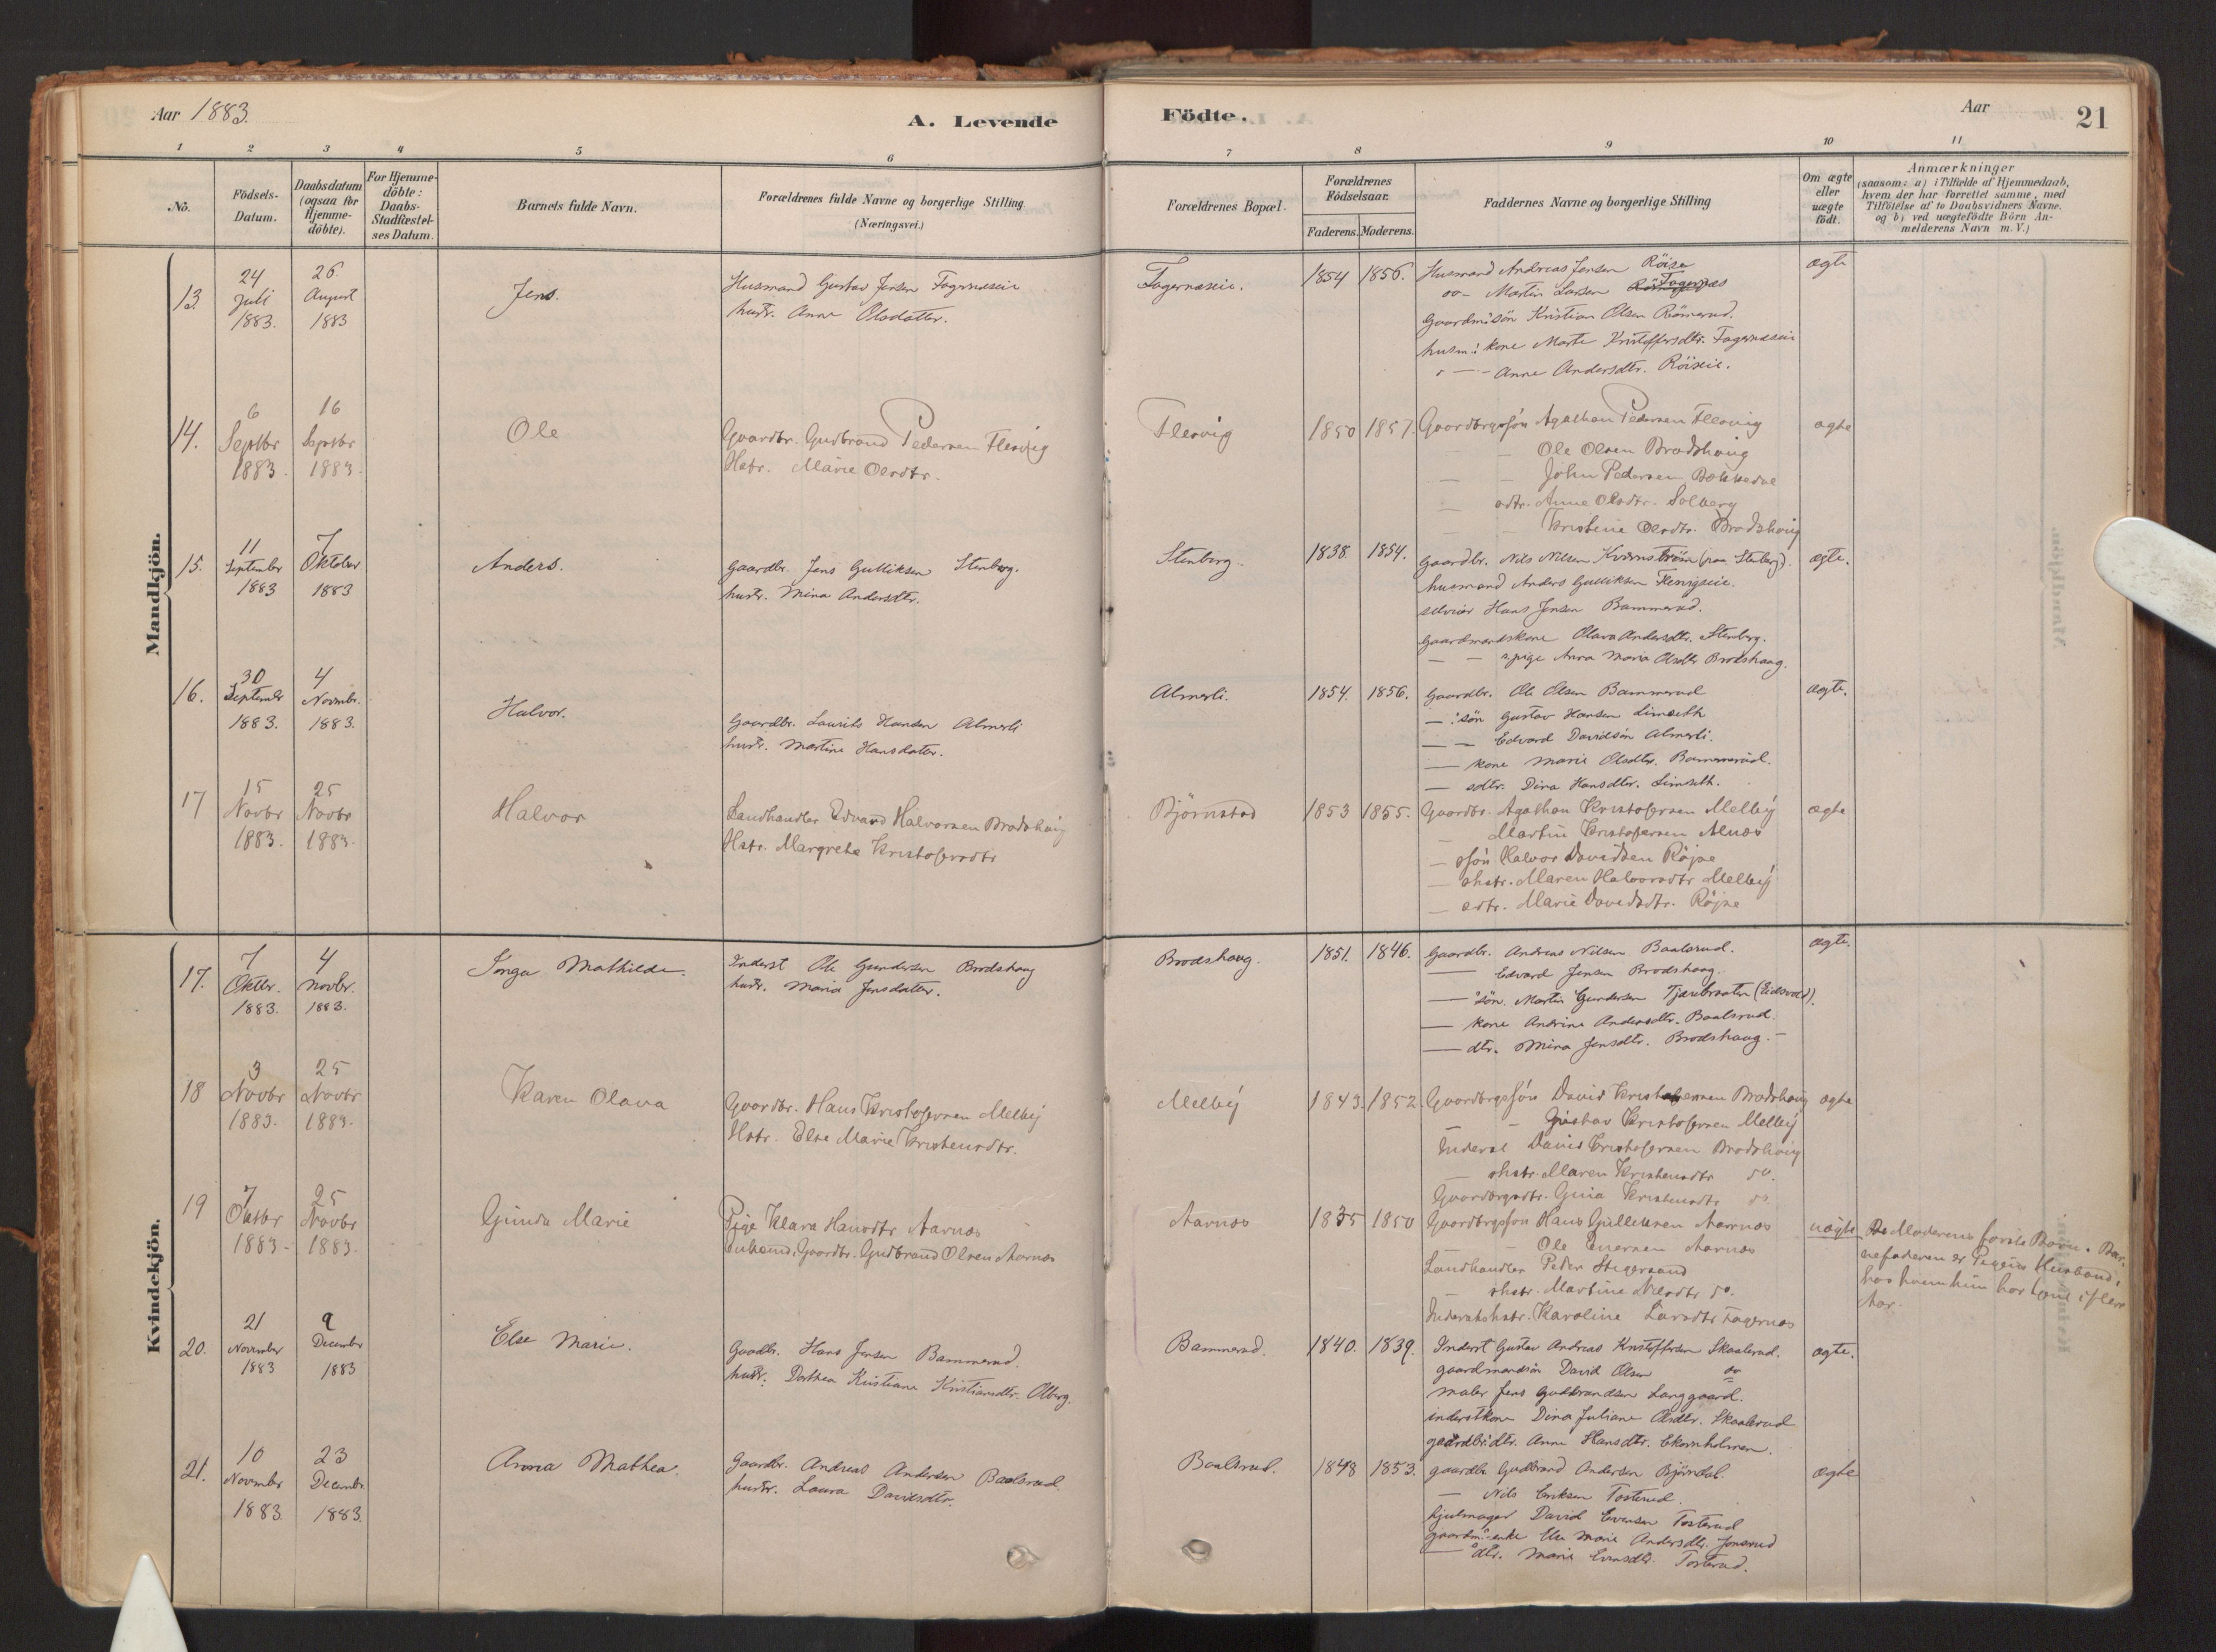 Aar 1883.
A. Levende
Födte.
Aar
21
1
2
3
4
5
6
7
8
9
10
11
No.
Födsels-
Datum.
Daabsdatum
(ogsaa for
Hjemme-
döbte).
For Hjemme-
döbte:
Daabs-
Stadfæstel-
ses Datum.
Barnets fulde Navn.
Forældrenes fulde Navne og borgerlige Stilling
(Næringsvei.)
Forældrenes Bopæl.
Forældrenes
Födselsaar.
Faderens.
Moderens.
Faddernes Navne og borgerlige Stilling
Om ægte
eller
uægte
födt.
Anmærkninger
(saasom: a) i Tilfælde af Hjemmedaab,
hvem der har forrettet samme, med
Tilföielse af to Daabsvidners Navne.
og b) ved uægtefödte Börn An-
melderens Navn m. V.)
Mandkjön.
13.
24
Juli
1883.
26
August
1883
Jens.
Husmand Gustav Jensen Fagernæseie
hustr. Anne Olsdatter.
Fagernæseie.
1854
1856.
Husmand Andreas Jensen Röise
oo- Martin Larsen Fagernæs
Gaardm:sön Kristian Olsen Römerud.
husm: kone Marte Kristoffersdtr. Fagernæseie
Anne Andersdtr. Röiseie.
ægte
14.
6
Septbr
1883.
16
Septbr
1883.
Ole
Gaardbr. Gudbrand Pedersen Flesvig
Hstr. Marie Olsdtr.
Flesvig
1850
1857.
Gaardbrgssön Agathon Pedersen Flesvig
- Ole Olsen Brodshoug
- - John Pedersen Bekkedal
- sdtr. Anne Olsdtr. Solberg
- Kristine Olsdtr. Brodshoug
ægte
15.
11
September
1883
7
Oktober
1883
Anders.
Gaardbr. Jens Gulliksen Stenberg.
hustr. Mina Andersdtr.
Stenberg.
1838.
1854.
Gaardbr. Nils Nilsen Kværnström (paa Stenberg).
husmand Anders Gulliksen Flesvigseie.
selveier Hans Jensen Bammerud.
gaardmandskone Olava Andersdtr. Stenberg.
- - s.pige Anna Maria Olsdtr Brodshaug.
ægte.
16.
30
September
1883.
4
Novmbr.
1883.
Halvor.
Gaardbr. Laurits Hansen Almerli
hustr. Martine Hansdatter.
Almerli.
1854.
1856.
Gaardbr. Ole Olsen Bammerud
—:sön Gustav Hansen Limseth
— — Edvard Davidsön Almerli.
— kone Marie Olsdtr. Bammerud.
— sdtr. Dina Hansdtr. Limseth.
ægte.
17
15
Novbr
1883.
25
Novbr
1883.
Halvor
Landhandler Edvard Halvorsen Brodshoug
Hstr. Margrethe Kristofersdtr
Bjørnstad
1853
1855.
Gaardbr. Agathon Kristofersen Melbÿ
Martin Kristofersen Alnæs
— ssön Halvor Davidsen Röjse
— shstr. Maren Halvorsdtr Melbÿ
— sdtr. Marie Davidsdtr. Röjse
ægte
Kvindekjön.
17.
7
Oktbr.
1883.
4
Novbr.
1883.
Inga Mathilde.
Inderst Ole Gundersen Brodshaug
hustr. Maria Jensdatter.
Brodshaug.
1851.
1846.
Gaardbr. Andreas Nilsen Baalsrud.
— Edvard Jensen Brodshaug.
—:sön Martin Gundersen Tjærebraaten (Eidsvold).
— kone Andrine Andersdtr. Baalsrud.
— dtr. Mina Jensdtr. Brodshaug.
ægte.
18
3
Novbr
1883.
25
Novbr
1883.
Karen Olava
Gaardbr. Hans Kristofersen Melbÿ
Hstr. Else Marie Kristensdtr.
Melbÿ
1843.
1852.
Gaardbrgssön David Kristofersen Brodshoug
- Gustav Kristofersen Melbÿ
Inderst David Kristofersen Brodshoug
— shstr. Maren Kristensdtr do.
Gaardbrgsdtr. Gina Kristensdtr do
ægte
19
7
Oktbr
1883.
25
Novbr
1883.
Gunda Marie
Pige Klara Hansdtr Aarnæs
Enkemd. Gaardbr. Gudbrand Olsen Aarnæs
Aarnæs
1835
1850
Gaardbrgssön Hans Gulliksen Aarnæs
- Ole Enersen Aarnæs
Landhandler Peder Stegersand
- shstr. Martine Nilsdtr do.
Inderstshstr. Karoline Larsdtr Fagernæs
uægte
Moderens første Barn. Bar-
nefaderen er Pigens Husbond,
hos hvem hun har tjent i flere
Aar.
20.
21
November
1883
9
December
1883
Else Marie.
Gaardbr. Hans Jensen Bammerud.
hustr: Dorthea Kristiane Kristiansdtr. Olberg.
Bammerud.
1840.
1839.
Inderst Gustav Andreas Kristoffersen Skaalerud.
gaardmandsön David Olsen oo
maler Jens Gudbrandsen Langgaard.
inderstkone Dina Juliane Olsdtr. Skaalerud
gaardbr:dtr. Anne Hansdtr. Ekornholmen.
ægte.
21.
10
November
1883.
23
Decembr.
1883.
Anna Mathea.
Gaardbr. Andreas Andersen Baalsrud.
hustr. Laura Davidsdtr.
Baalsrud.
1848
1853.
gaardbr. Gudbrand Andersen Björndal.
— Nils Eriksen Tosterud.
hjulmager David Evensen Tosterud
gaardm:enke Else Marie Andersdtr. Jonsrud
— dtr. Marie Evensdtr. Tosterud.
ægte